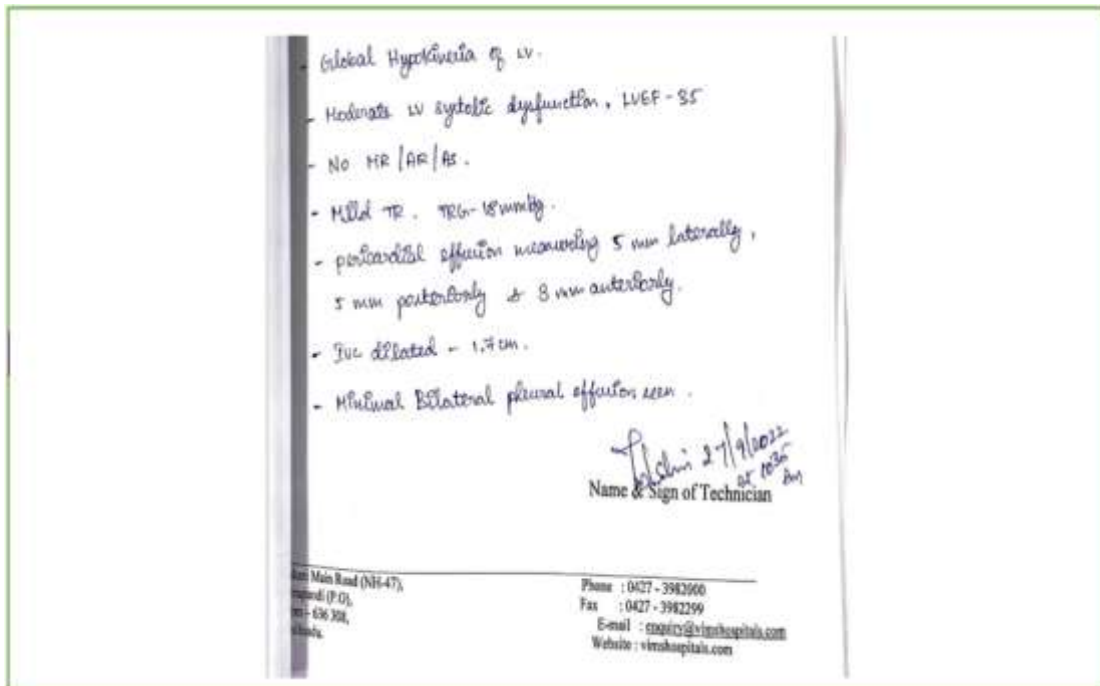 - Global Hypokinesia of LV.
- Moderate LV systolic dysfunction. LVEF - 35
- No MR/AR/AS.
- Mild TR. TRG - 18 mmHg.
- pericardial effusion measuring 5 mm laterally,
5 mm posteriorly & 3 mm anteriorly.
- IVC dilated - 1.7 cm.
- Minimal Bilateral pleural effusion seen.
27/9/2022
at 1035
Am
Name & Sign of Technician
Main Road (NH-47),
(P.O),
- 636 308,
Phone : 0427 - 3982000
Fax : 0427 - 3982299
E-mail : enquiry@vimshospitals.com
Website : vimshospitals.com